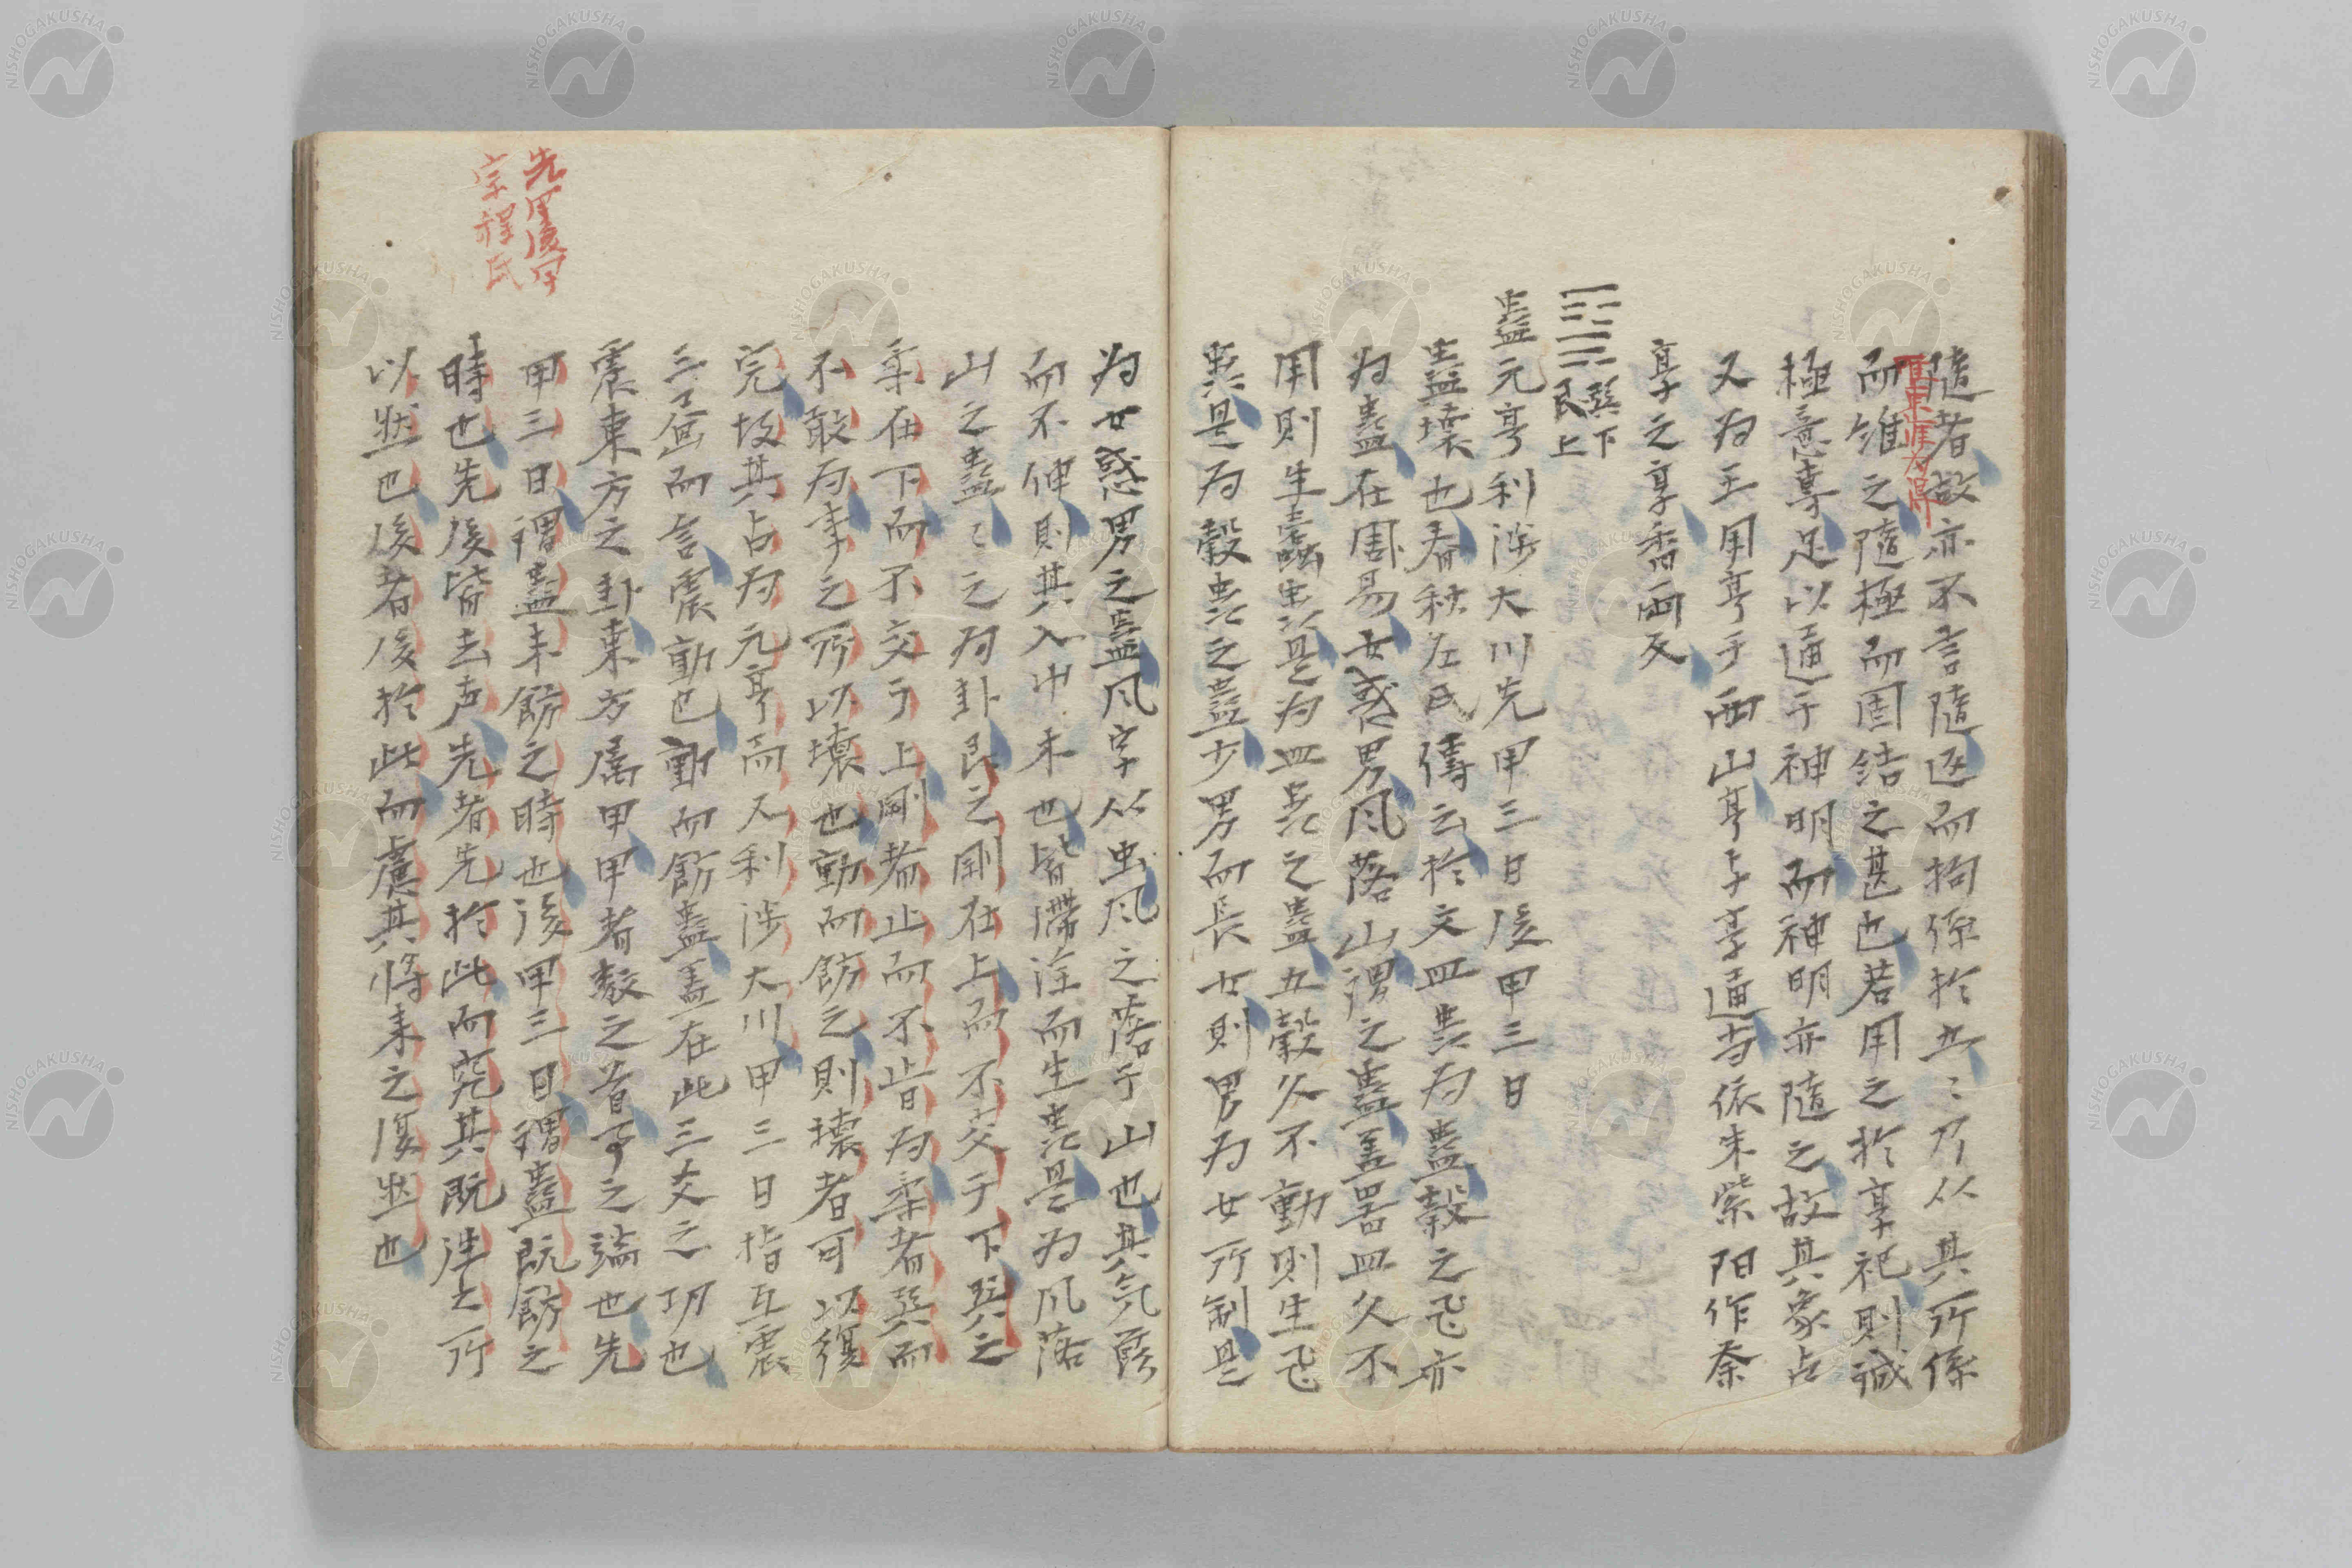 隨者故亦不言隨返而拘係於五〻乃从其所係
東涯為得
而維之隨極而固結之甚也若用之於享祀則誠
極意專足以通于神明而神明亦隨之故其象占
又為王用亨于西山亨与享通当依朱紫陽作泰
享之享香兩反
䷑ 巽下艮上
蠱元亨利渉大川先甲三日後甲三日
蠱壊也春秋左氏傳云於文皿虫為蠱穀之飛亦
為蠱在周易女惑男風落山謂之蠱蓋器皿久不
用則生蠹虫是為皿虫之蠱五穀久不動則生飛
虫是為穀虫之蠱少男而長女則男為女所制是
為女惑男之蠱風字从虫風之落于山也其气蔭
而不伸則其入中未也皆滯淫而生虫是為風落
山之蠱〻之為卦艮之剛在上而不交于下巽之
柔在下而不交于上剛者止而不肯為柔者巽而
不敢為事之所以壊也動而飭之則壊者可以復
完故其占為元亨而又利渉大川甲三日指互震
三畫而言震動也動而飭蠱蓋在此三爻之功也
震東方之卦東方属甲甲者数之首事之端也先
甲三日謂蠱未飭之時也後甲三日謂蠱既飭之
時也先後皆去声先者先於此而究其既往之所
以壯也後者後於此而慮其将来之復壯也
先甲後甲
宗程氏
NISHOGAKUSHA